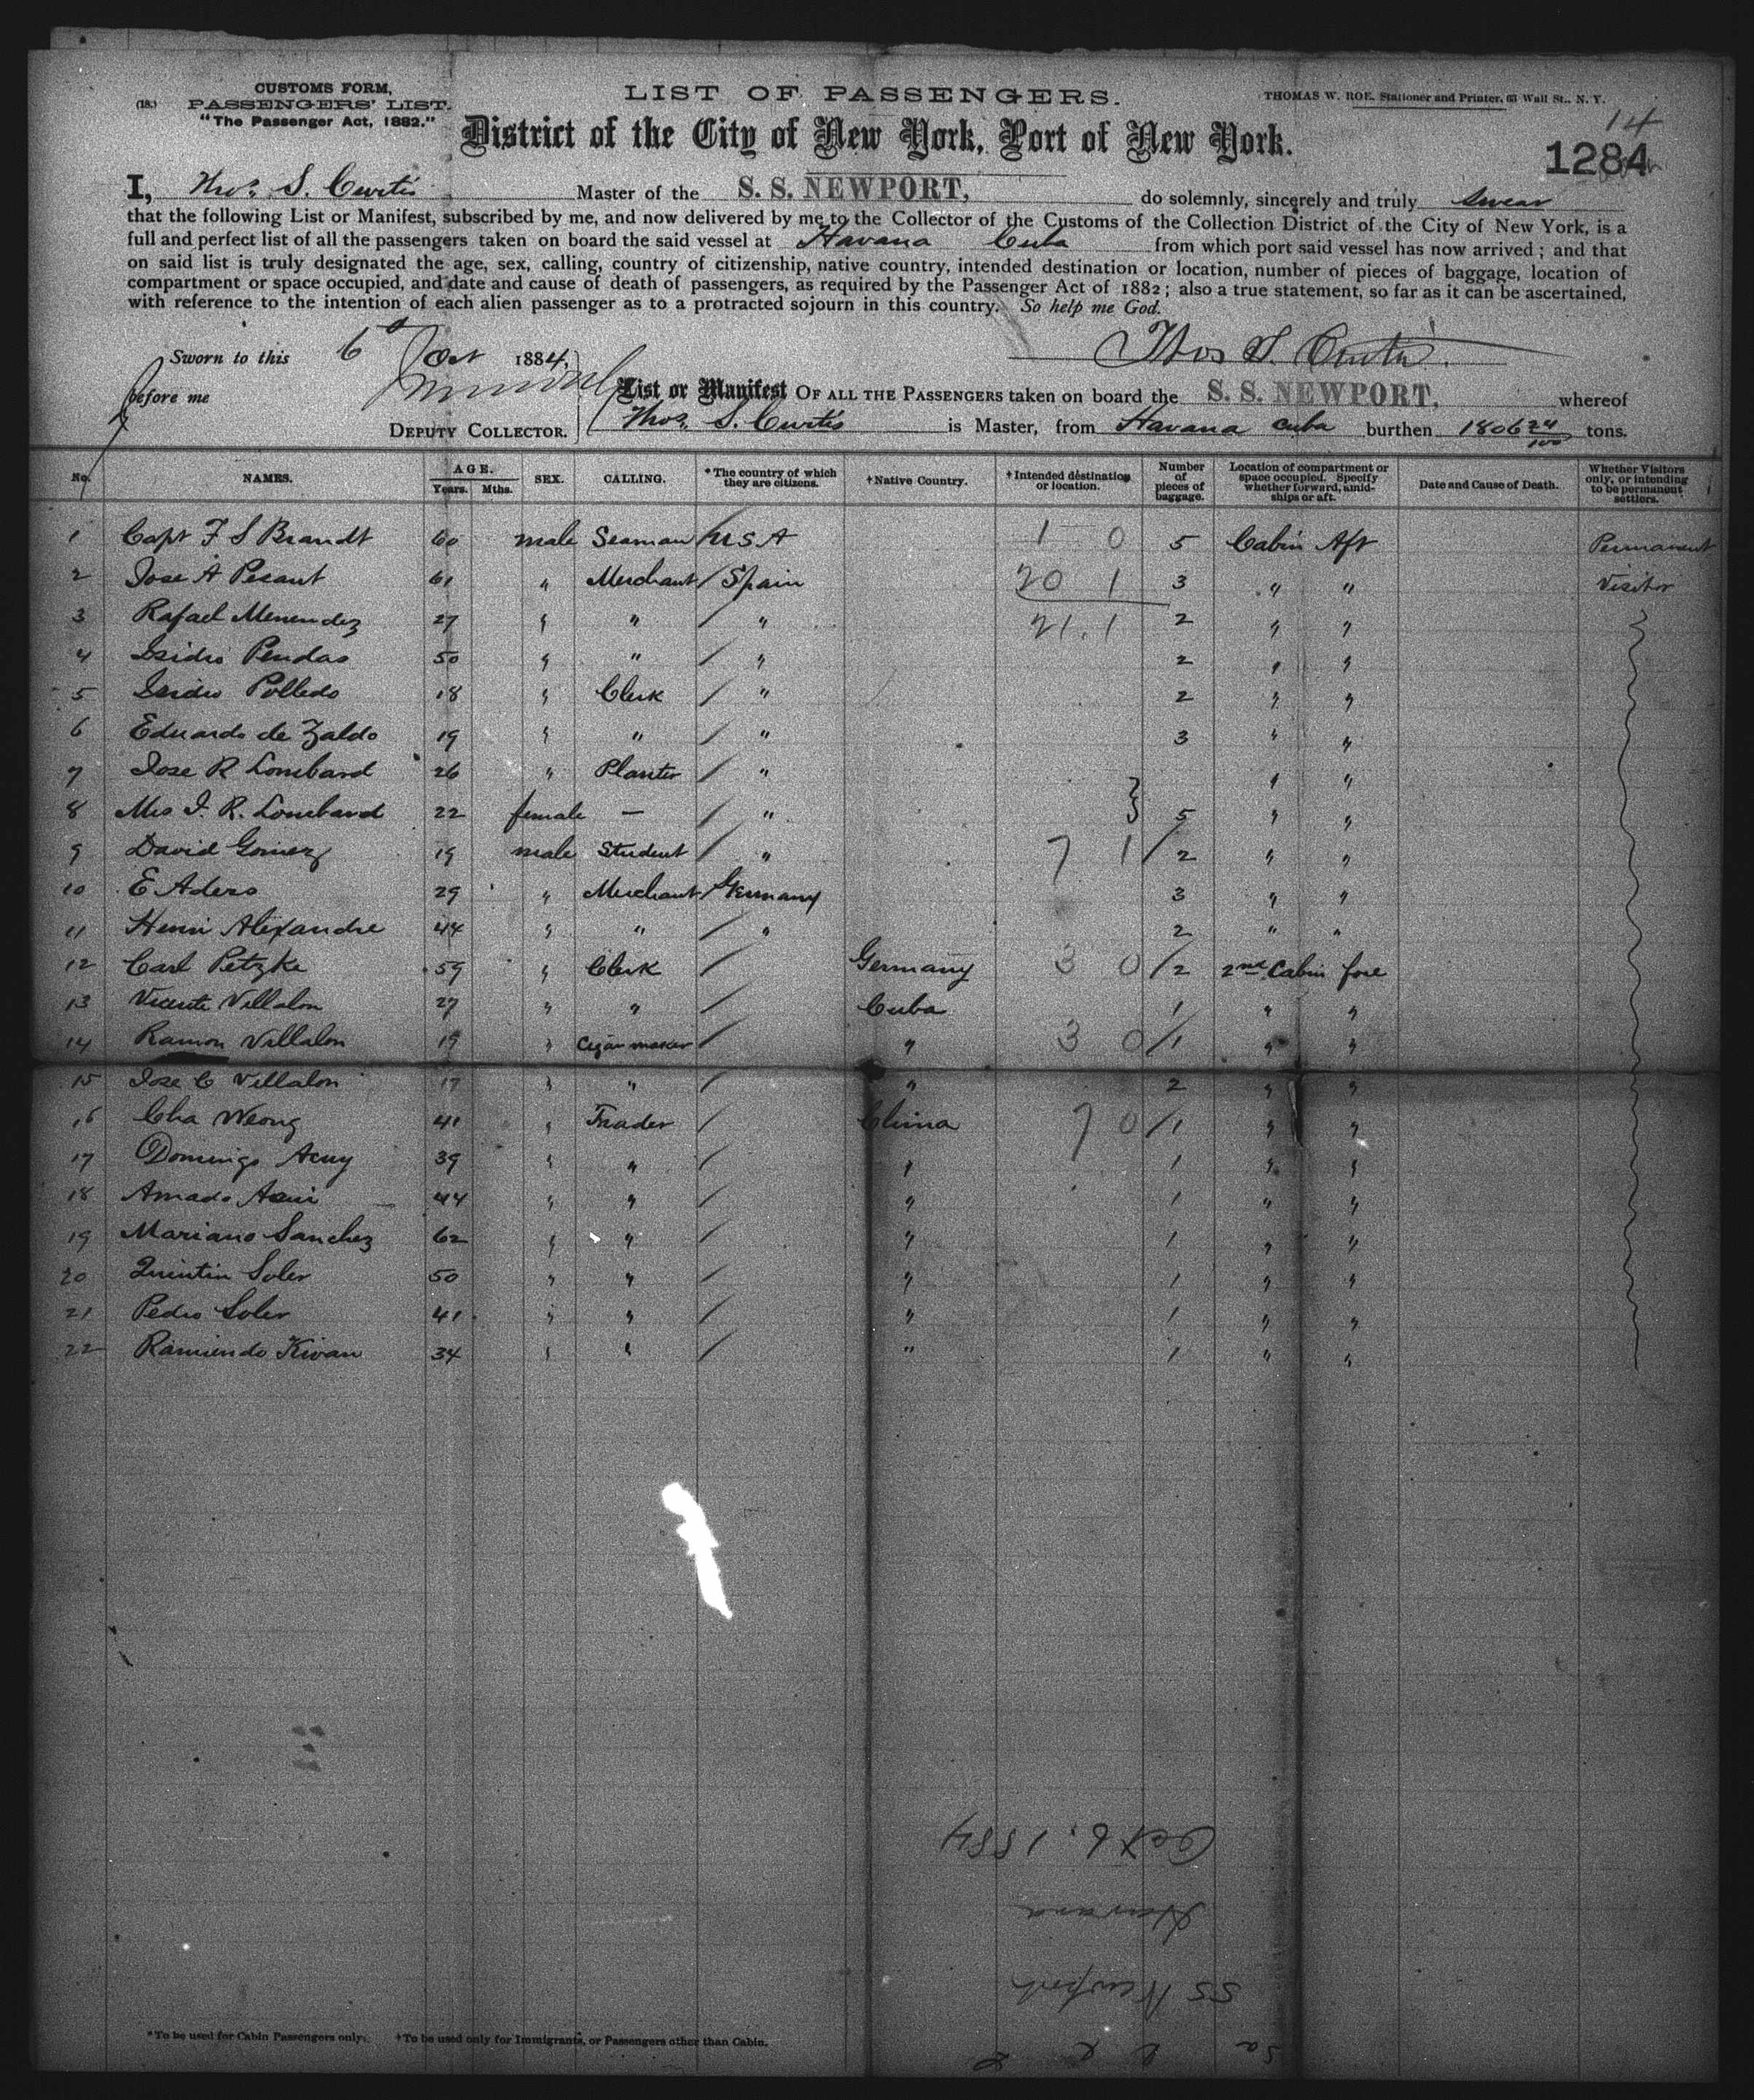 CUSTOMS FORM,
(18.) PASSENGERS' LIST.
"The Passenger Act, 1882."
LIST OF PASSENGERS.
THOMAS W. ROE, Stationer and Printer, 63 Wall St., N. Y.
14
District of the City of New York, Port of New York.
1284
I, Thos. S. Curtis Master of the S. S. NEWPORT, do solemnly, sincerely and truly swear
that the following List or Manifest, subscribed by me, and now delivered by me to the Collector of the Customs of the Collection District of the City of New York, is a
full and perfect list of all the passengers taken on board the said vessel at Havana Cuba from which port said vessel has now arrived; and that
on said list is truly designated the age, sex, calling, country of citizenship, native country, intended destination or location, number of pieces of baggage, location of
compartment or space occupied, and date and cause of death of passengers, as required by the Passenger Act of 1882; also a true statement, so far as it can be ascertained,
with reference to the intention of each alien passenger as to a protracted sojourn in this country. So help me God.
Sworn to this 6 Oct 1884,
Thos S. Curtis
before me
List or Manifest OF ALL THE PASSENGERS taken on board the S. S. NEWPORT, whereof
DEPUTY COLLECTOR.
Thos. S. Curtis is Master, from Havana Cuba burthen 1806 24/100 tons.
No. NAMES. AGE. Years. Mths. SEX. CALLING. *The country of which they are citizens. †Native Country. †Intended destination or location. Number of pieces of baggage. Location of compartment or space occupied. Specify whether forward, amidships or aft. Date and Cause of Death. Whether Visitors only, or intending to be permanent settlers.
1 Capt F S Brandt 60 male Seaman / U S A 1 0 5 Cabin Aft Permanent
2 Jose A Pesant 61 " Merchant / Spain 20 1 3 " " Visitor
3 Rafael Menendez 27 " " / " 21.1 2 " "
4 Isidro Pendas 50 " " / " 2 " "
5 Isidro Polledo 18 " Clerk / " 2 " "
6 Eduardo de Zaldo 19 " " / " 3 " "
7 Jose R Lombard 26 " Planter / " " "
8 Mrs J. R. Lombard 22 female — / " 5 " "
9 David Gomez 19 male Student / " 7 1 / 2 " "
10 E Aders 29 " Merchant / Germany 3 " "
11 Henri Alexandre 44 " " / " 2 " "
12 Carl Petzke 59 " Clerk / Germany 3 0 / 2 2nd Cabin fore
13 Vicente Villalon 27 " " / Cuba 1 " "
14 Ramon Villalon 19 " Cigar maker / " 3 0 / 1 " "
15 Jose C Villalon 17 " " / " 2 " "
16 Cha Weong 41 " Trader / China 7 0 / 1 " "
17 Domingo Acuy 39 " " / " 1 " "
18 Amado Asui 44 " " / " 1 " "
19 Mariano Sanchez 62 " " / " 1 " "
20 Quintin Soler 50 " " / " 1 " "
21 Pedro Soler 41 " " / " 1 " "
22 Ramiendo Kivan 34 " " / " 1 " "
Oct 6. 1884
Havana
SS Newport
*To be used for Cabin Passengers only. †To be used only for Immigrants, or Passengers other than Cabin.